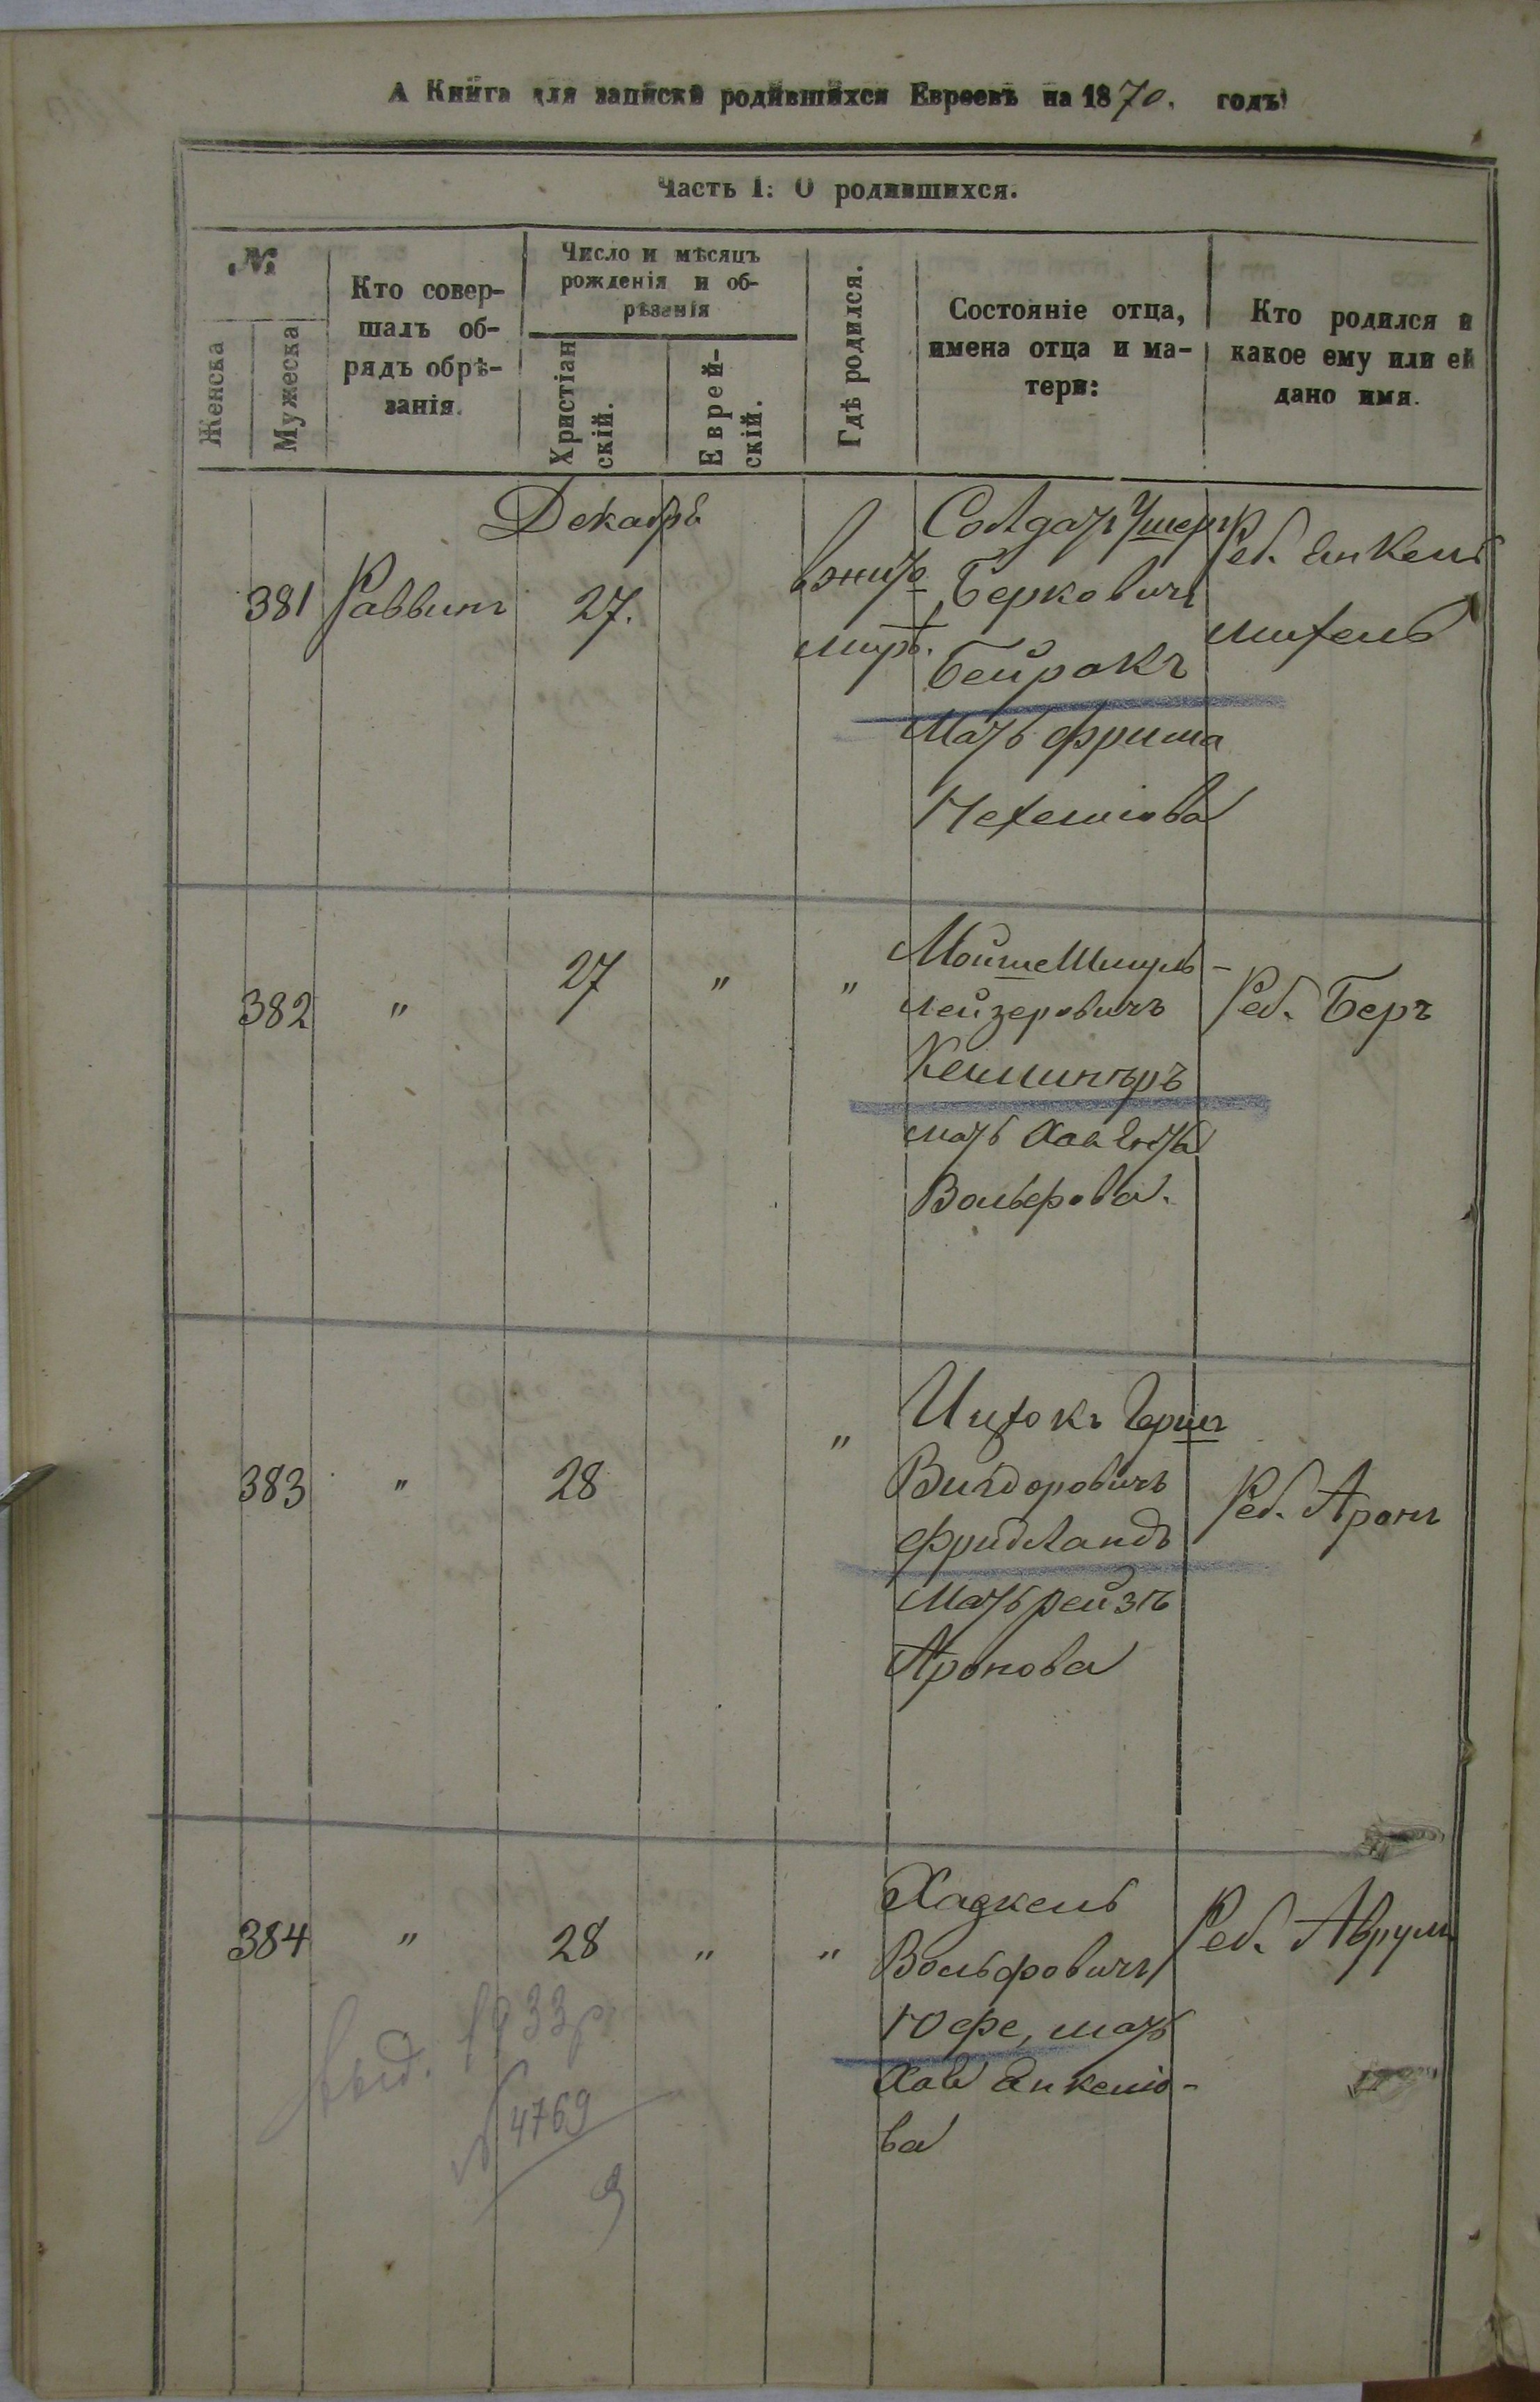 А Книга для записки родившихся Евреевъ на 1870. годъ
Часть I: О родившихся.
№
Женска
Мужеска
Кто совер-
шалъ об-
рядъ обрѣ-
занія.
Число и мѣсяцъ
рожденія и об-
рѣзанія
Христіан
скій.
Еврей-
скій.
Гдѣ родился.
Состояніе отца,
имена отца и ма-
тери:
Кто родился и
какое ему или ей
дано имя.
Декабрь
381 Раввинъ 27.
Солдатъ Ушеръ
Берковичъ
Бейракъ
Мать Фрума
Реб. Янкель
Михель
382 " 27 " "
Мойше Шмуль-
Лейзеровичъ
мать Хая
Вольфова.
Реб. Беръ
383 " 28 "
Ицхокъ Гершъ
Вигдоровичъ
Фридландъ
Мать Рейзъ
Аронова
Реб. Аронъ
384 " 28 " "
Хацкель
Вольфовичъ
Юфе, мать
Хая Янкелю-
ва
Реб. Аврумъ
выд. 1933 г.
№ 4769